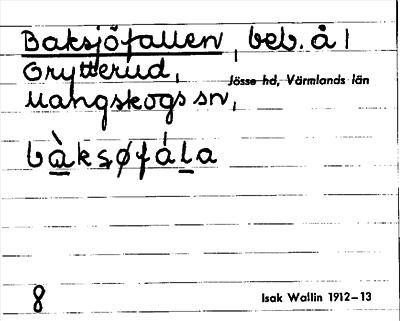 Baksjöfallen, beb. å
Grytterud,
Jösse hd, Värmlands län
Mangskogs sn,
bàksøfála
8
Isak Wallin 1912–13